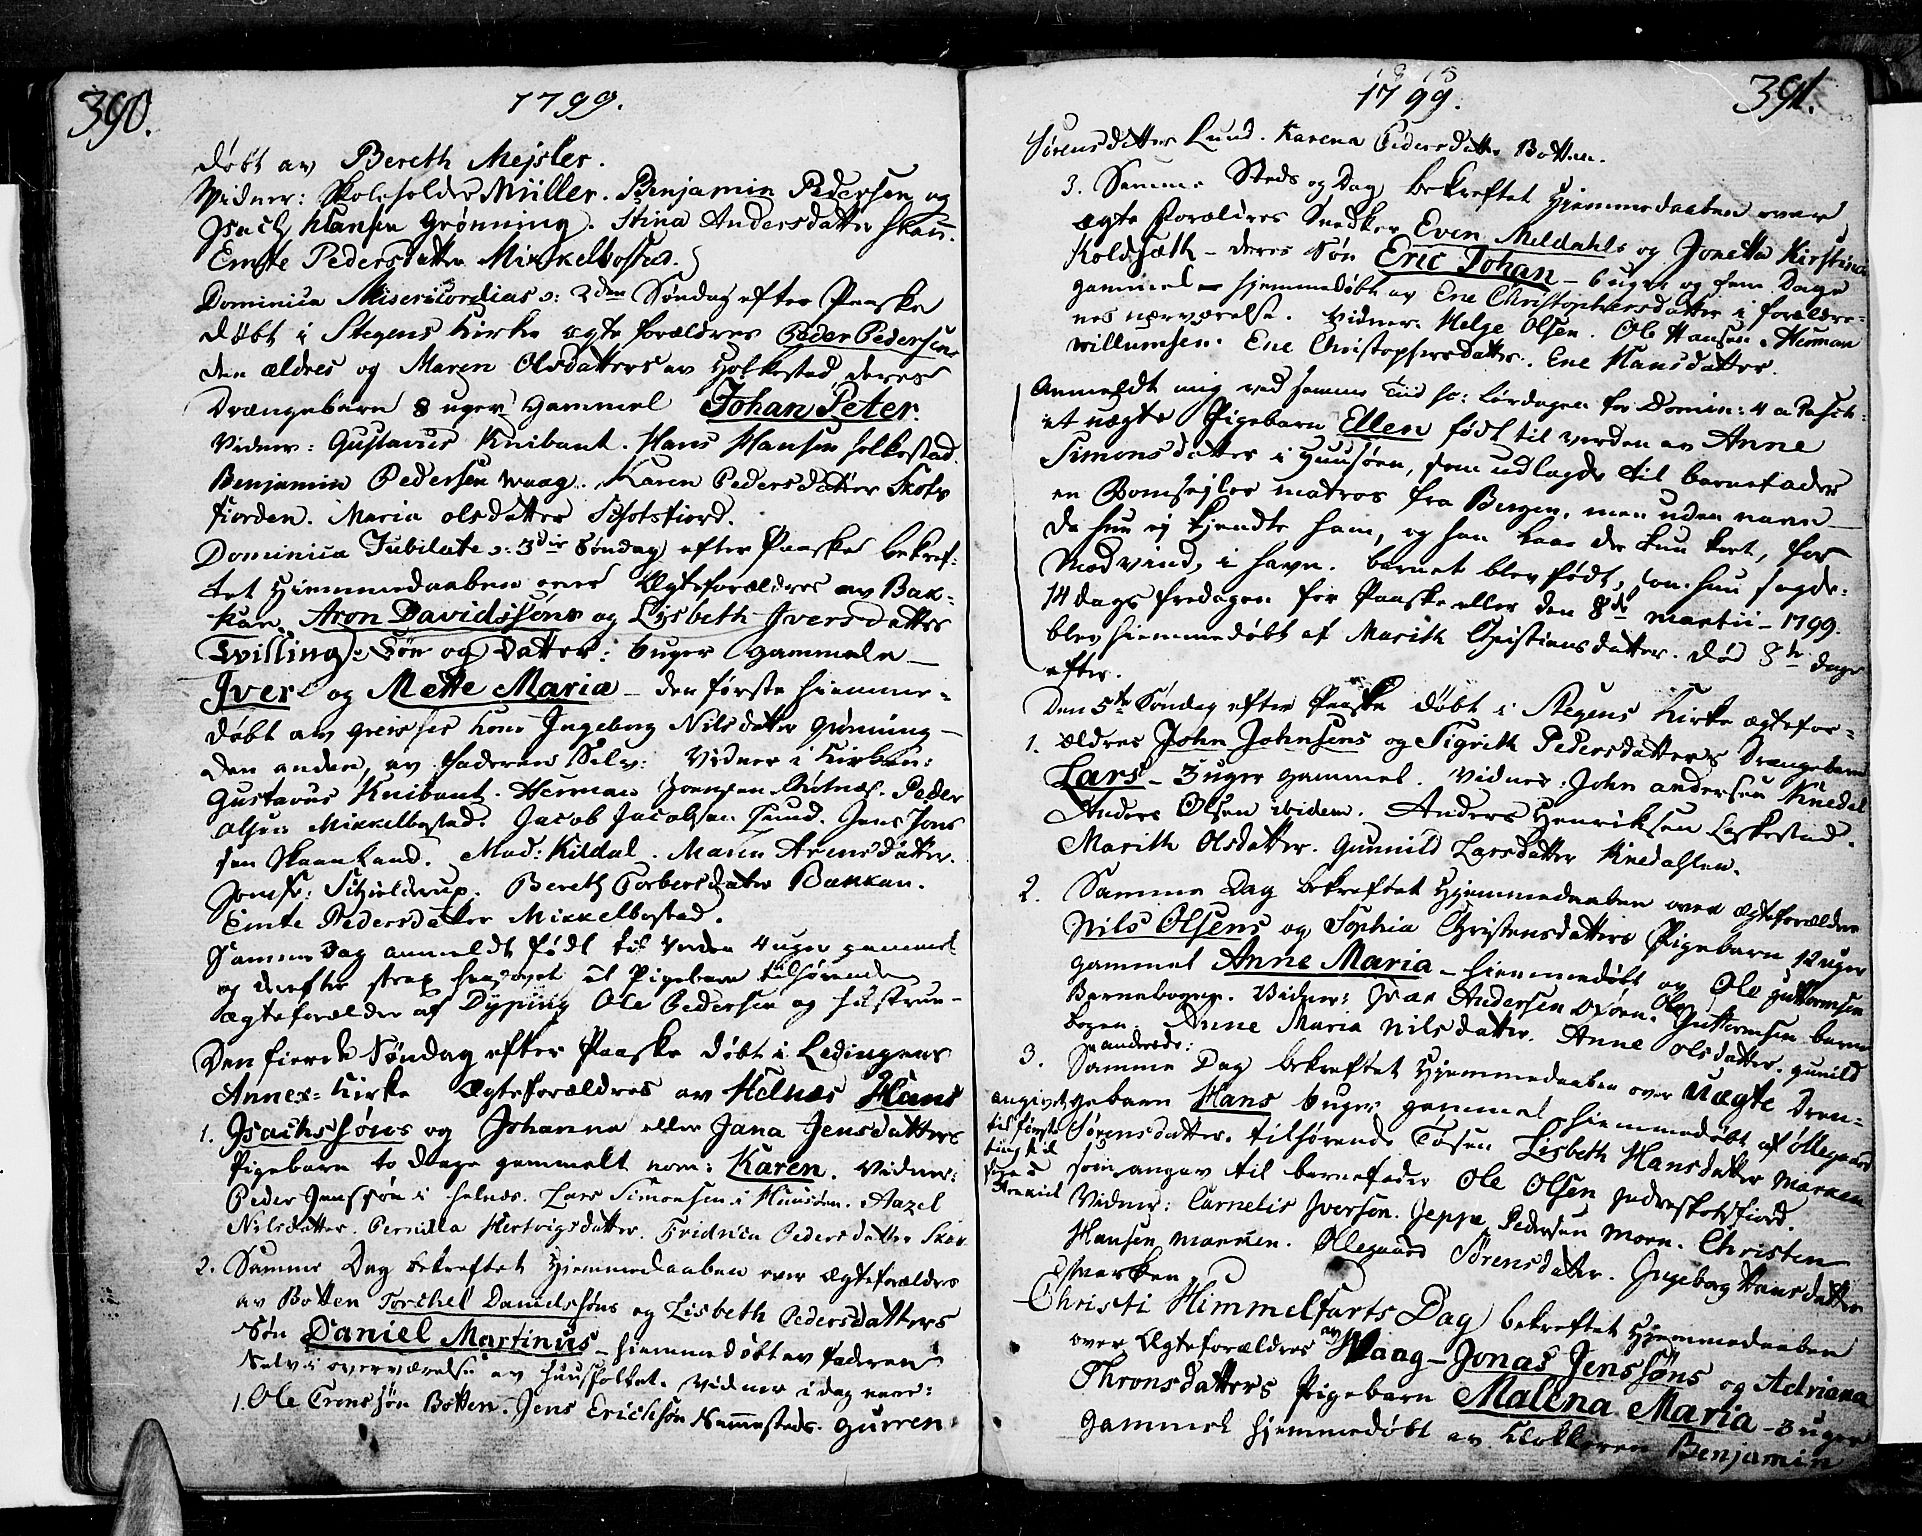 390.
1799.
døbt av Bereth Mejsler.
Widner: Skoleholder Müller. Benjamin Pedersen og
Isach Hansen Grønning. Stina Andersdatter Skau.
Emte Pedersdatter Mikkelbosted.
Dominica Misericordias ɔ: 2den Søndag efter Paaske
døbt i Stegens Kirke ægte forældres Peder Pedersens
den ældres og Maren Olsdatters av Holkestad deres
Drængebarn 8 uger gammel Johan Peter.
Vidner: Gustavus Knibant. Hans Hansen Holkestad.
Benjamin Pedersen Waag. Karen Pedersdatter Skots
fiorden. Maria Olsdatter Skotsfiord.
Dominica Jubilate ɔ: 3die Søndag efter Paaske bekref-
tet Hiemmedaaben over Ægteforældres av Bak-
kan, Aron Davidssøns og Lisbeth Iversdatters
Tvilling: Søn og Datter: 6 uger gammele
Iver og Mette Maria – den første hiemme-
døbt av hons Ingeborg Nilsdatter Grønning –
den anden, av Faderen Selv: Vidner i Kirken:
Gustavus Knibant. Herman Joensen Bøtnæs. Peder
Olsen Mikkelbostad. Jacob Jacobsen Lund. Jens Jons
sen Skaanland. Mad: Kildal. Maren Arensdatter.
Jomfr: Schielderup. Bereth Torbersdatter Bakkan.
Emte Pedersdatter Mikkelbostad.
Samme Dag anmeldt født til Verden 4 uger gammel
og derefter strax hensovet et Pigebarn tilhørende
ægteforælder af Dyping Ole Pedersen og hustrue –
Den fierde Søndag efter Paaske døbt i Lødingens
Annex-Kirke Ægteforældres av Helnæs Hans
1. Isachssøns og Johanna eller Jana Jensdatters
Pigebarn to dage gammelt nom: Karen. Vidner:
Peder Jenssøn i Helnæs. Lars Simonsen i Huusøen. Aazel
Nilsdatter. Pernilla Hertvigsdatter. Fridrica Pedersdatter
2. Samme Dag bekreftet Hjemmedaaben over Ægteforældres
av Botten Torchel Danielssøns og Lisbeth Pedersdatters
Søn Daniel Martinus – hiemmedøbt av Faderen
Selv i overværelse av huusfolket. Vidner i dag vare:
1. Ole Tronssøn Botten. Jens Erichssøn Sammesteds. Gurren
1799.
391.
Sørensdatter Lund. Karena Pedersdatter Botten.
3. Samme Steds og Dag bekreftet Hjemmedaaben over
ægte Forældres Snedker Even Meldahls og Jonetta Kirstina
Koldsæth – deres Søn Eric Johan – 6 uger og fem Dage
gammel – hjemmedøbt av Ene Christophersdatter i forældre-
nes nærværelse. Vidner: Helge Olsen. Ole Hansen. Herman
Willumsen. Ene Christophersdatter. Ene Hansdatter.
Anmeldt mig ved samme Tiid sc: Løverdagen før Domin: 4 a Pasch:
et uægte Pigebarn Ellen født til verden av Anne
Simonsdatter i Huusøen, som udlagde til barnefader
en Bomsejler matros fra Bergen, men uden navn –
da hun ej kjendte ham, og han laae der kun kort, for
Modvind, i havn. barnet blev født, som hun sagde:
14 dags fredagen før Paaske eller den 8de martii – 1799.
blev hiemmedøbt af Marith Christiansdatter. død 8te dage
efter.
Den 5te Søndag efter Paaske døbt i Stegens Kirke ægtefor-
1. ældres John Johnsens og Sigrith Pedersdatters Drængebarn
Lars – 3 uger gammel. Vidner: John Andersen Knedal
Anders Olsen ibidem. Anders Henriksen Leskestad.
Marith Olsdatter. Gunnild Larsdatter Knedahlen.
2. Samme Dag bekreftet Hjemmedaaben over Ægteforældre
Nils Olsens og Sophia Christensdatters Pigebarn 12 uger
gammel Anne Maria – hiemmedøbt og Ole Guttormsen
Barnebogen. Vidner: Andersen Ole Guttormsen barne
bogen. Anne Maria Nilsdatter. Anne Olsdatter. Gunild
andersdr:
3. Samme Dag bekreftet Hjemmedaaben over uægte Dren-
gebarn Hans 6 uger gammel hiemmedøbt af Ollegaard
Sørensdatter. tilhørende Tøsen Lisbeth Hansdatter Marken
som angav til barnefader Ole Olsen indreskotsfiord.
Vidner: Carnelis Iverson. Jeppe Pedersen Moen. Christen
Hansen Marken. Ollegaard Sørensdatter. Ingeborg Hansdatter
Marken.
angivet
til første
ting til
Christi Himmelfarts Dag bekreftet Hjemmedaaben
over Ægteforældres av Waag – Jonas Jenssøns og Adriana
Thronsdatters Pigebarn Malena Maria – 3 uger
gammel hjemmedøbt av Klokkeren Benjamin